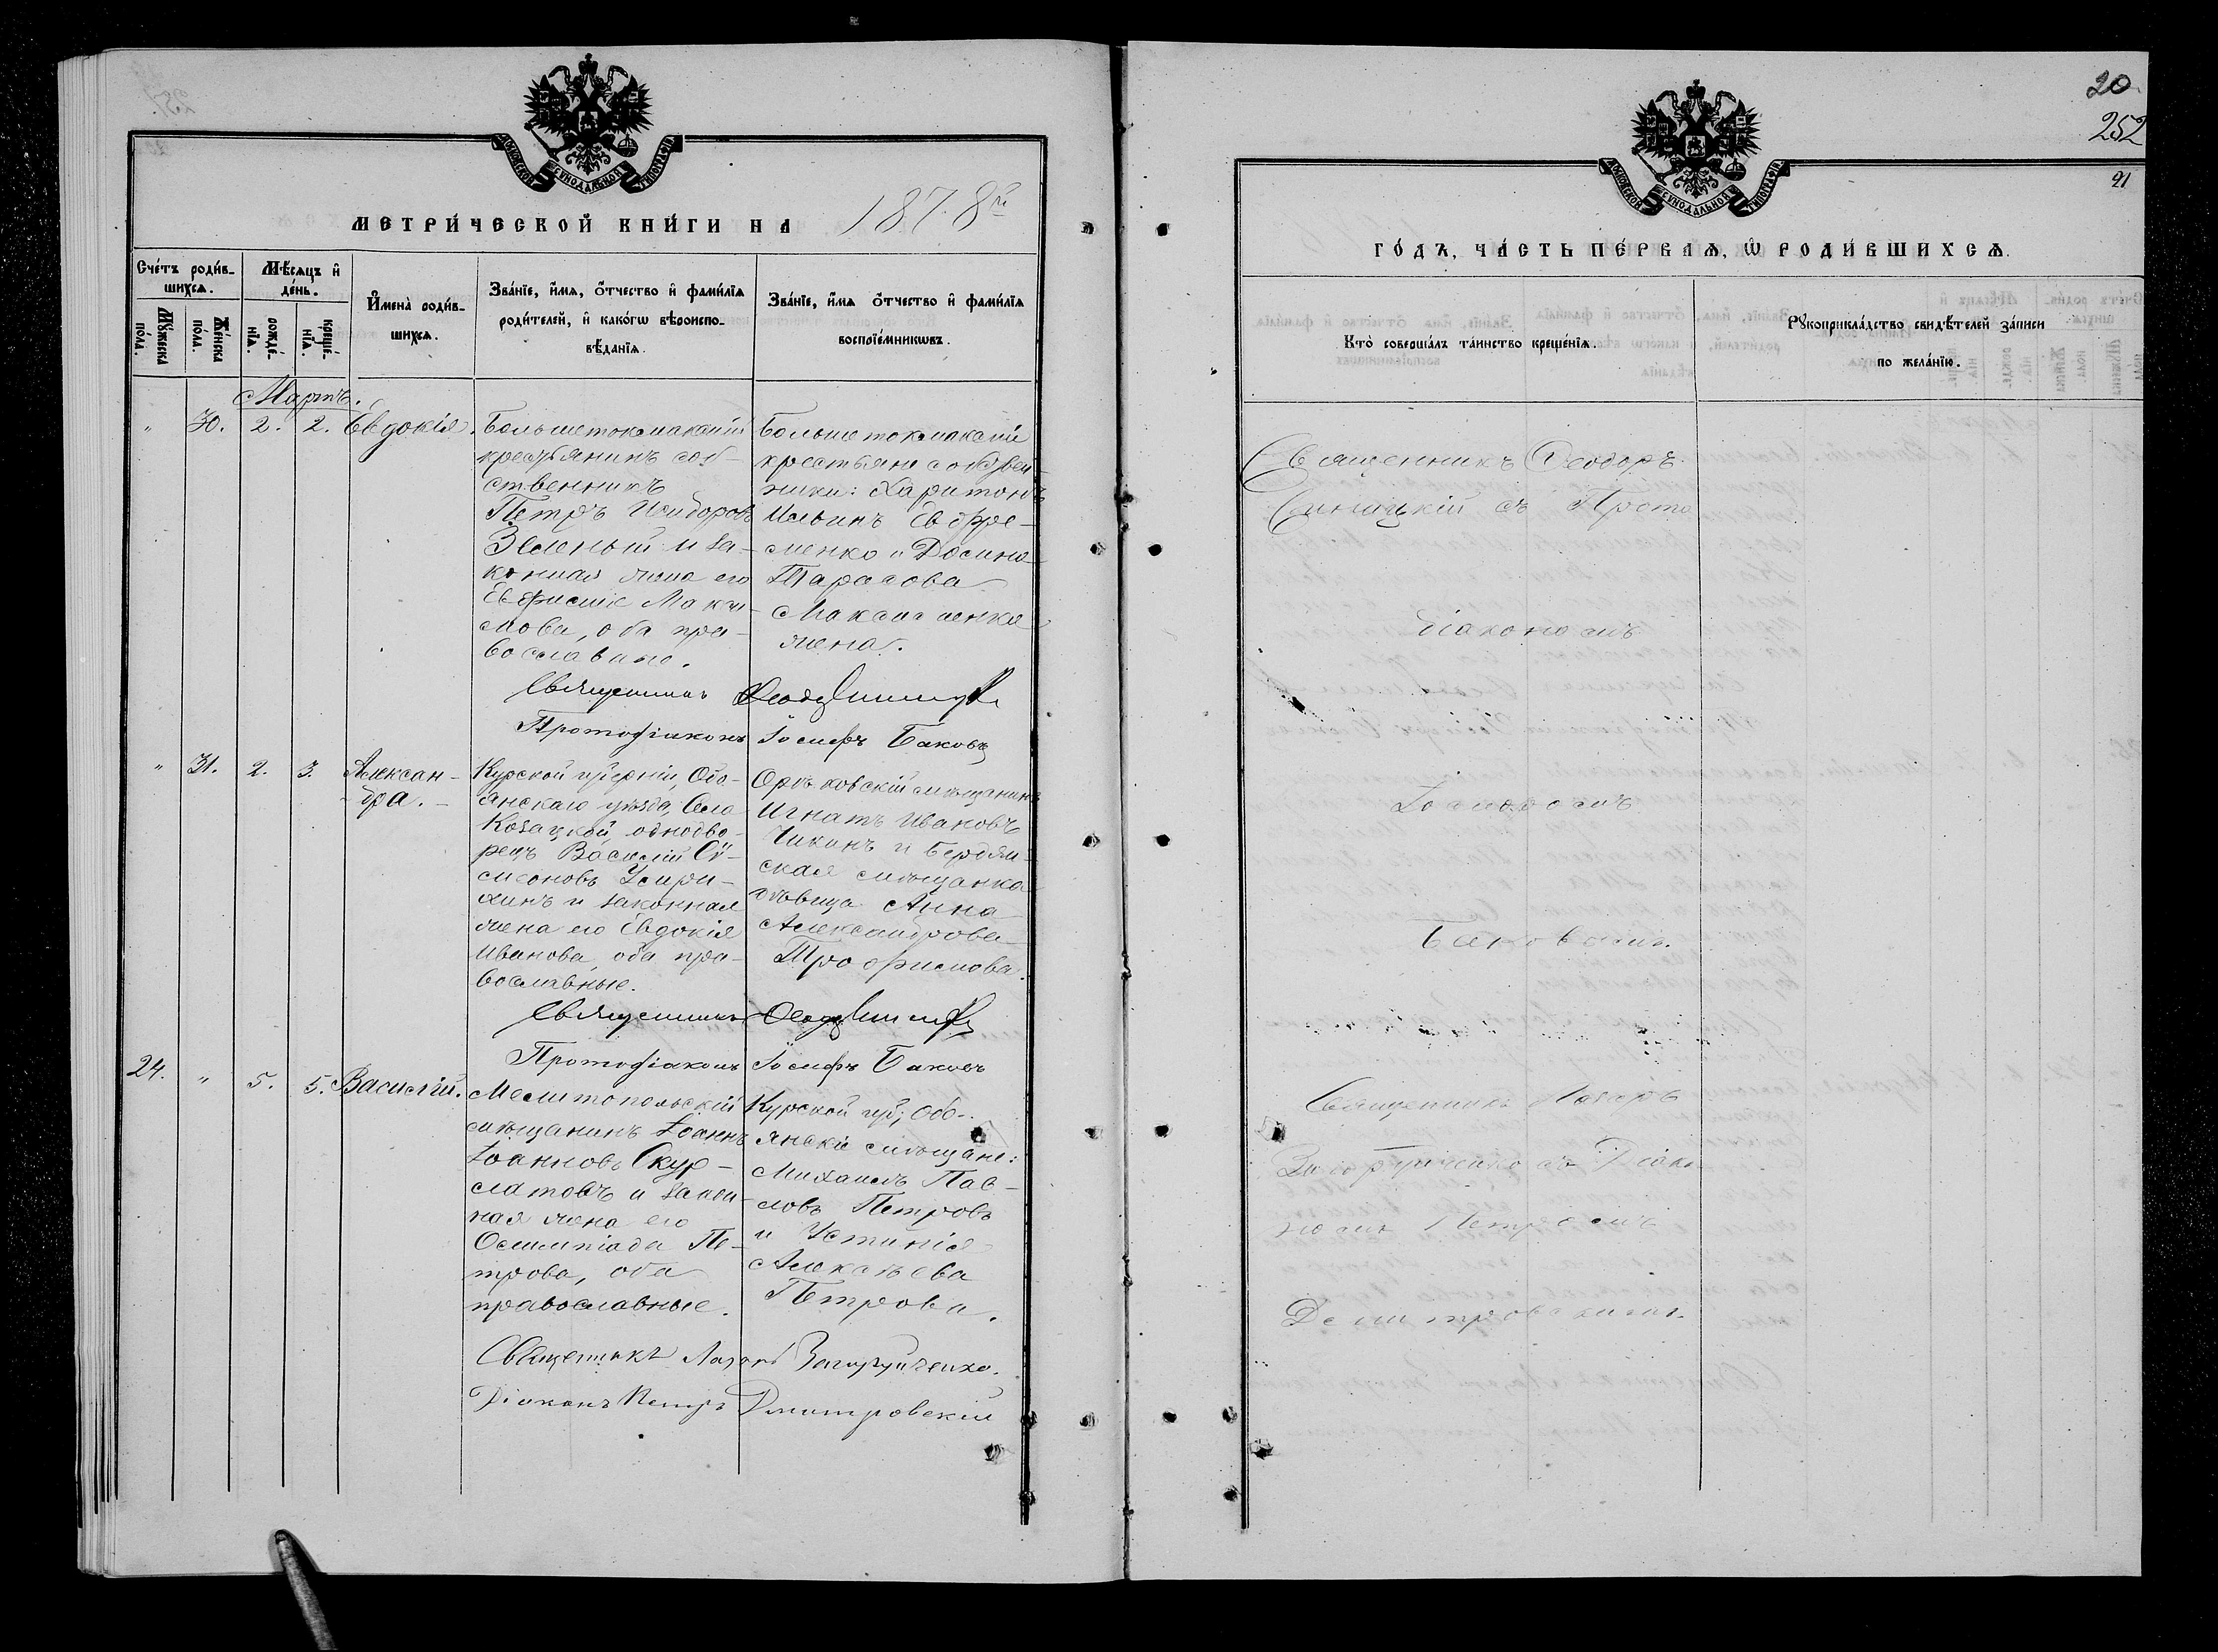 МОСКОВСКОЙ СѴНОДАЛЬНОЙ ТИПОГРАФІИ
МЕТРИ́ЧЕСКОЙ КНИ́ГИ НА 1878й
Сче́тъ роди́вшихсѧ.
Мꙋ́жеска по́ла.
Же́нска по́ла.
Мѣ́сѧцъ и҆ де́нь.
рожде́нїѧ.
креще́нїѧ.
И҆мена̀ роди́вшихсѧ.
Зва́нїе, и҆́мѧ, ѻ҆́тчество и҆ фами́лїѧ
роди́телей, и҆ како́гѡ вѣроиспо-
вѣ́данїѧ.
Зва́нїе, и҆́мѧ ѻ҆́тчество и҆ фами́лїѧ
воспрїе́мникѡвъ.
Мартъ.
" 30. 2. 2. Евдокія.
Большетокмакскій
крестьянинъ соб-
ственникъ
Петръ Исидоровъ
Зеленый и за-
конная жена его
Евфимія Макси-
мова, оба пра-
вославные.
Большетокмакскіе
крестьяне собствен-
ники: Харитонъ
Ильинъ Евфре-
менко и Домна
Тарасова
Максименкова
жена.
Священникъ Ѳеодоръ Синицкій
Протодіаконъ Іосифъ Баковъ
" 31. 2. 3. Алексан-
дра.
Курской губерніи, Обо-
янскаго уѣзда, Села
Козацкой однодво-
рецъ Василій Си-
меоновъ
и законная
жена его Евдокія
Иванова, оба пра-
вославные.
Орѣховскій мѣщанинъ
Игнатъ Ивановъ
Чикинъ и Бердян-
ская мѣщанка
дѣвица Анна
Александрова
Трофимова.
Священникъ Ѳеодоръ Синицкій
Протодіаконъ Іосифъ Баковъ
24. " 5. 5. Василій.
Мелитопольскій
мѣщанинъ Іоаннъ
Іоанновъ Скур-
латовъ и закон-
ная жена его
Олимпіада Пе-
трова, оба
православные.
Курской губ; Обо-
янскіе мѣщане:
Михаилъ Пав-
ловъ Петровъ
и Устинія
Алексѣева
Петрова.
Священникъ Лазарь Загорульченко.
Діаконъ Петръ Дмитровскій
20
252
91
МОСКОВСКОЙ СѴНОДАЛЬНОЙ ТИПОГРАФІИ
ГО́ДЪ, ЧА́СТЬ ПЕ́РВАѦ, Ѡ҆ РОДИ́ВШИХСѦ.
Кто̀ соверша́лъ та́инство креще́нїѧ.
Рꙋкоприкла́дство свидѣ́телей за́писи
по жела́нїю.
Священникъ Ѳеодоръ
Синицкій съ Прото
діакономъ
Іосифомъ
Баковымъ.
Священникъ Лазарь
съ Діако
номъ Петромъ
Дмитровскимъ.